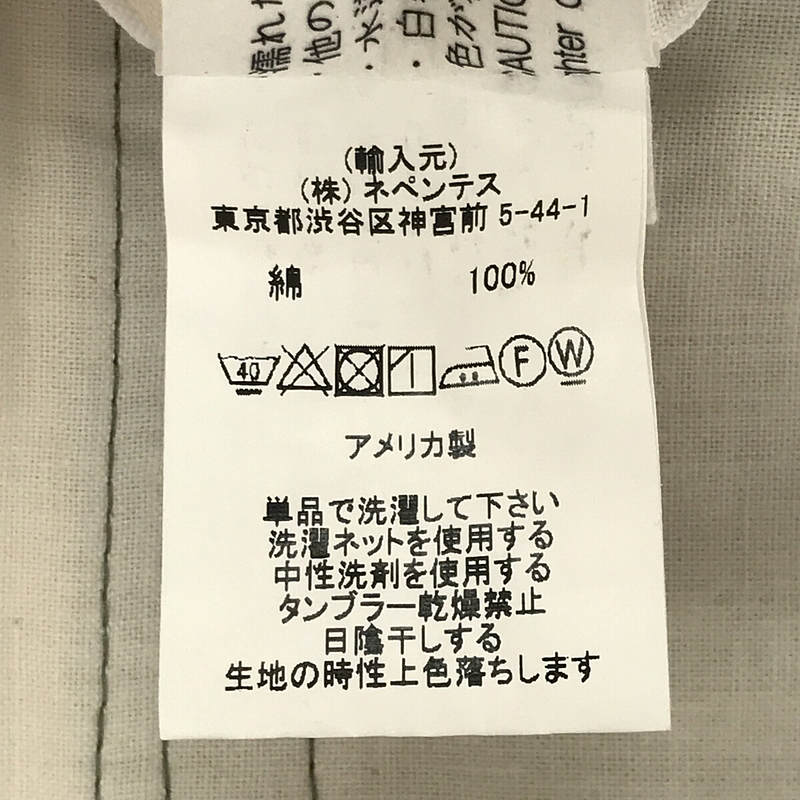 濡れた
・他の
・水
・白
色が
CAUTIO
ghter c
(輸入元)
(株) ネペンテス
東京都渋谷区神宮前 5-44-1
綿 100%
40 F W
アメリカ製
単品で洗濯して下さい
洗濯ネットを使用する
中性洗剤を使用する
タンブラー乾燥禁止
日陰干しする
生地の時性上色落ちします